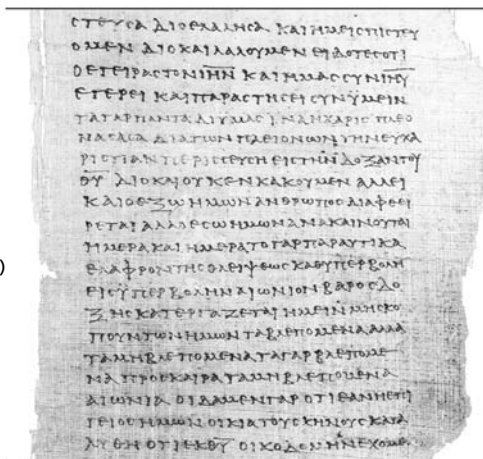 ϹΤΕΥϹΑ ΔΙΟ ΕΛΑΛΗϹΑ ΚΑΙ ΗΜΕΙϹ ΠΙϹΤΕΥ
ΟΜΕΝ ΔΙΟ ΚΑΙ ΛΑΛΟΥΜΕΝ ΕΙΔΟΤΕϹ ΟΤΙ
Ο ΕΓΕΙΡΑϹ ΤΟΝ ΙΗΝ ΚΑΙ ΗΜΑϹ ϹΥΝ ΙΗΥ
ΕΓΕΡΕΙ ΚΑΙ ΠΑΡΑϹΤΗϹΕΙ ϹΥΝ ΫΜΕΙΝ
ΤΑ ΓΑΡ ΠΑΝΤΑ ΔΙ ΥΜΑϹ ΙΝΑ Η ΧΑΡΙϹ ΠΛΕΟ
ΝΑϹΑϹΑ ΔΙΑ ΤΩΝ ΠΛΕΙΟΝΩΝ ΤΗΝ ΕΥΧΑ
ΡΙϹΤΙΑΝ ΠΕΡΙϹϹΕΥϹΗ ΕΙϹ ΤΗΝ ΔΟΞΑΝ ΤΟΥ
ΘΥ ΔΙΟ ΚΑΙ ΟΥΚ ΕΝΚΑΚΟΥΜΕΝ ΑΛΛ ΕΙ
ΚΑΙ Ο ΕΞΩ ΗΜΩΝ ΑΝΘΡΩΠΟϹ ΔΙΑΦΘΕΙ
ΡΕΤΑΙ ΑΛΛ Ο ΕϹΩ ΗΜΩΝ ΑΝΑΚΑΙΝΟΥΤΑΙ
ΗΜΕΡΑ ΚΑΙ ΗΜΕΡΑ ΤΟ ΓΑΡ ΠΑΡΑΥΤΙΚΑ
)
ΕΛΑΦΡΟΝ ΤΗϹ ΘΛΕΙΨΕΩϹ ΚΑΘ ΥΠΕΡΒΟΛΗ
ΕΙϹ ΥΠΕΡΒΟΛΗΝ ΑΙΩΝΙΟΝ ΒΑΡΟϹ ΔΟ
ΞΗϹ ΚΑΤΕΡΓΑΖΕΤΑΙ ΗΜΕΙΝ ΜΗ ϹΚΟ
ΠΟΥΝΤΩΝ ΗΜΩΝ ΤΑ ΒΛΕΠΟΜΕΝΑ ΑΛΛΑ
ΤΑ ΜΗ ΒΛΕΠΟΜΕΝΑ ΤΑ ΓΑΡ ΒΛΕΠΟΜΕ
ΝΑ ΠΡΟϹΚΑΙΡΑ ΤΑ ΜΗ ΒΛΕΠΟΜΕΝΑ
ΑΙΩΝΙΑ ΟΙΔΑΜΕΝ ΓΑΡ ΟΤΙ ΕΑΝ Η ΕΠΙ
ΓΕΙΟϹ ΗΜΩΝ ΟΙΚΙΑ ΤΟΥ ϹΚΗΝΟΥϹ ΚΑΤΑ
ΛΥΘΗ ΟΤΙ ΕΚ ΘΥ ΟΙΚΟΔΟΜΗΝ ΕΧΟΜΕ